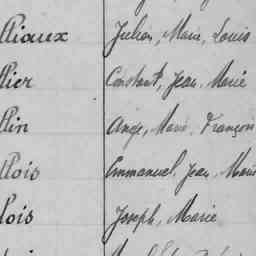 lliaux Julien, Marie, Louis
llier Constant, Jean, Marie
llin Ange, Marie, François
llois Emmanuel, Jean, Marie
lois Joseph, Marie